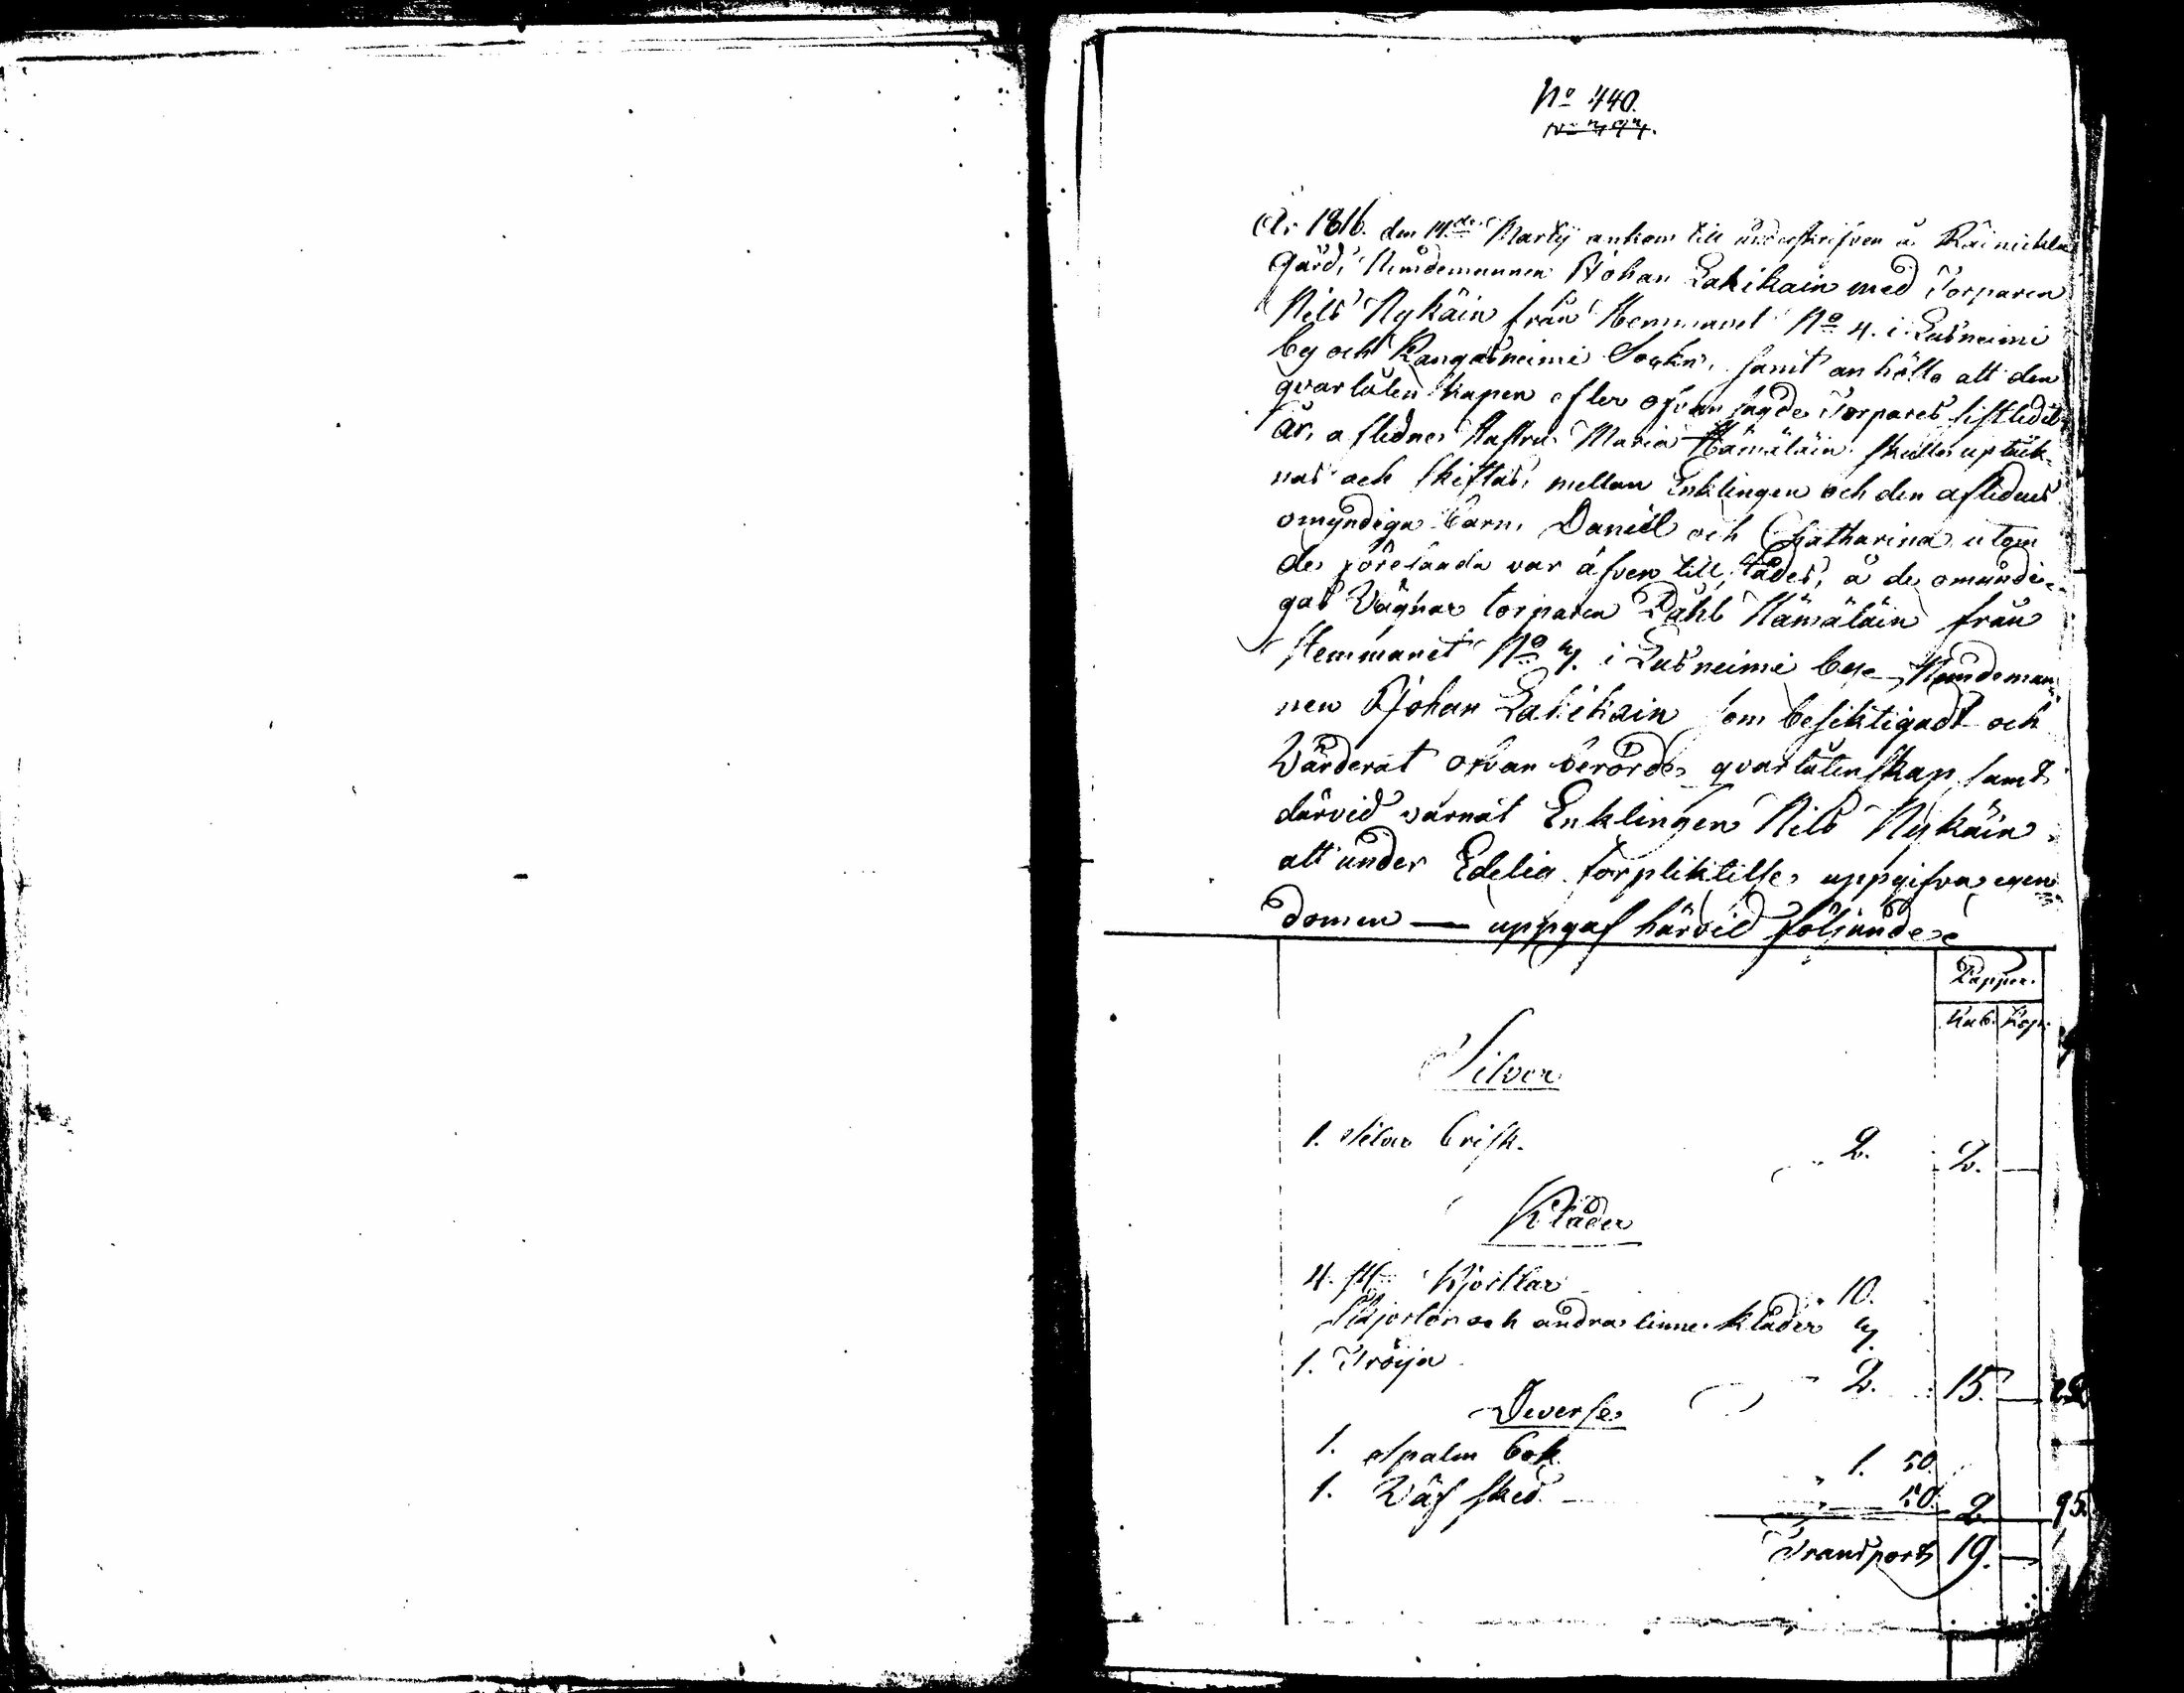 No 440.
År 1816. den 14de Martij ankom till underskrifven å Räinickela
Gård, Nemdemannen Johan Lahikain med Torparen
Nils Nykäin från Hemmanet No 4. i Lusneimi
by och Kangasneimi Sockn, samt anhöllo att den
qvarlåtenskapen efter ofvansagde Torpares sistledit
år, aflidne Hustru Maria Hämäläin skulle uptäck-
nas och skiftas, mellan Enklingen och den aflidnes
omyndiga barn, Daniel och Chatharina utom
des förelaada var äfven till städes, å de omündi-
gas Vägnar torparen Påhl Hämäläin från
Hemmanet No 4. i Lusneimi by Nämdeman-
nen Johan Lahikain som besiktigadt och
Värderat ofvan berörde qvarlåtenskap samt
därvid varnat Enklingen Nils Nykäin
att under Edelig förpliktelse uppgifva egen
domen — uppgaf härvid följande
Papper.
Rub. Kop.
Silver
1. Silver brisk. 2. 2. —
Kläder
4. st. Kjortlar 10.
Skjortor och andra linne kläder
1. Tröija 2. 15. —
Diverse
1. Spalm bok 1. 50.
1. Väf sked — 50. 2 95.
Transport 19. —